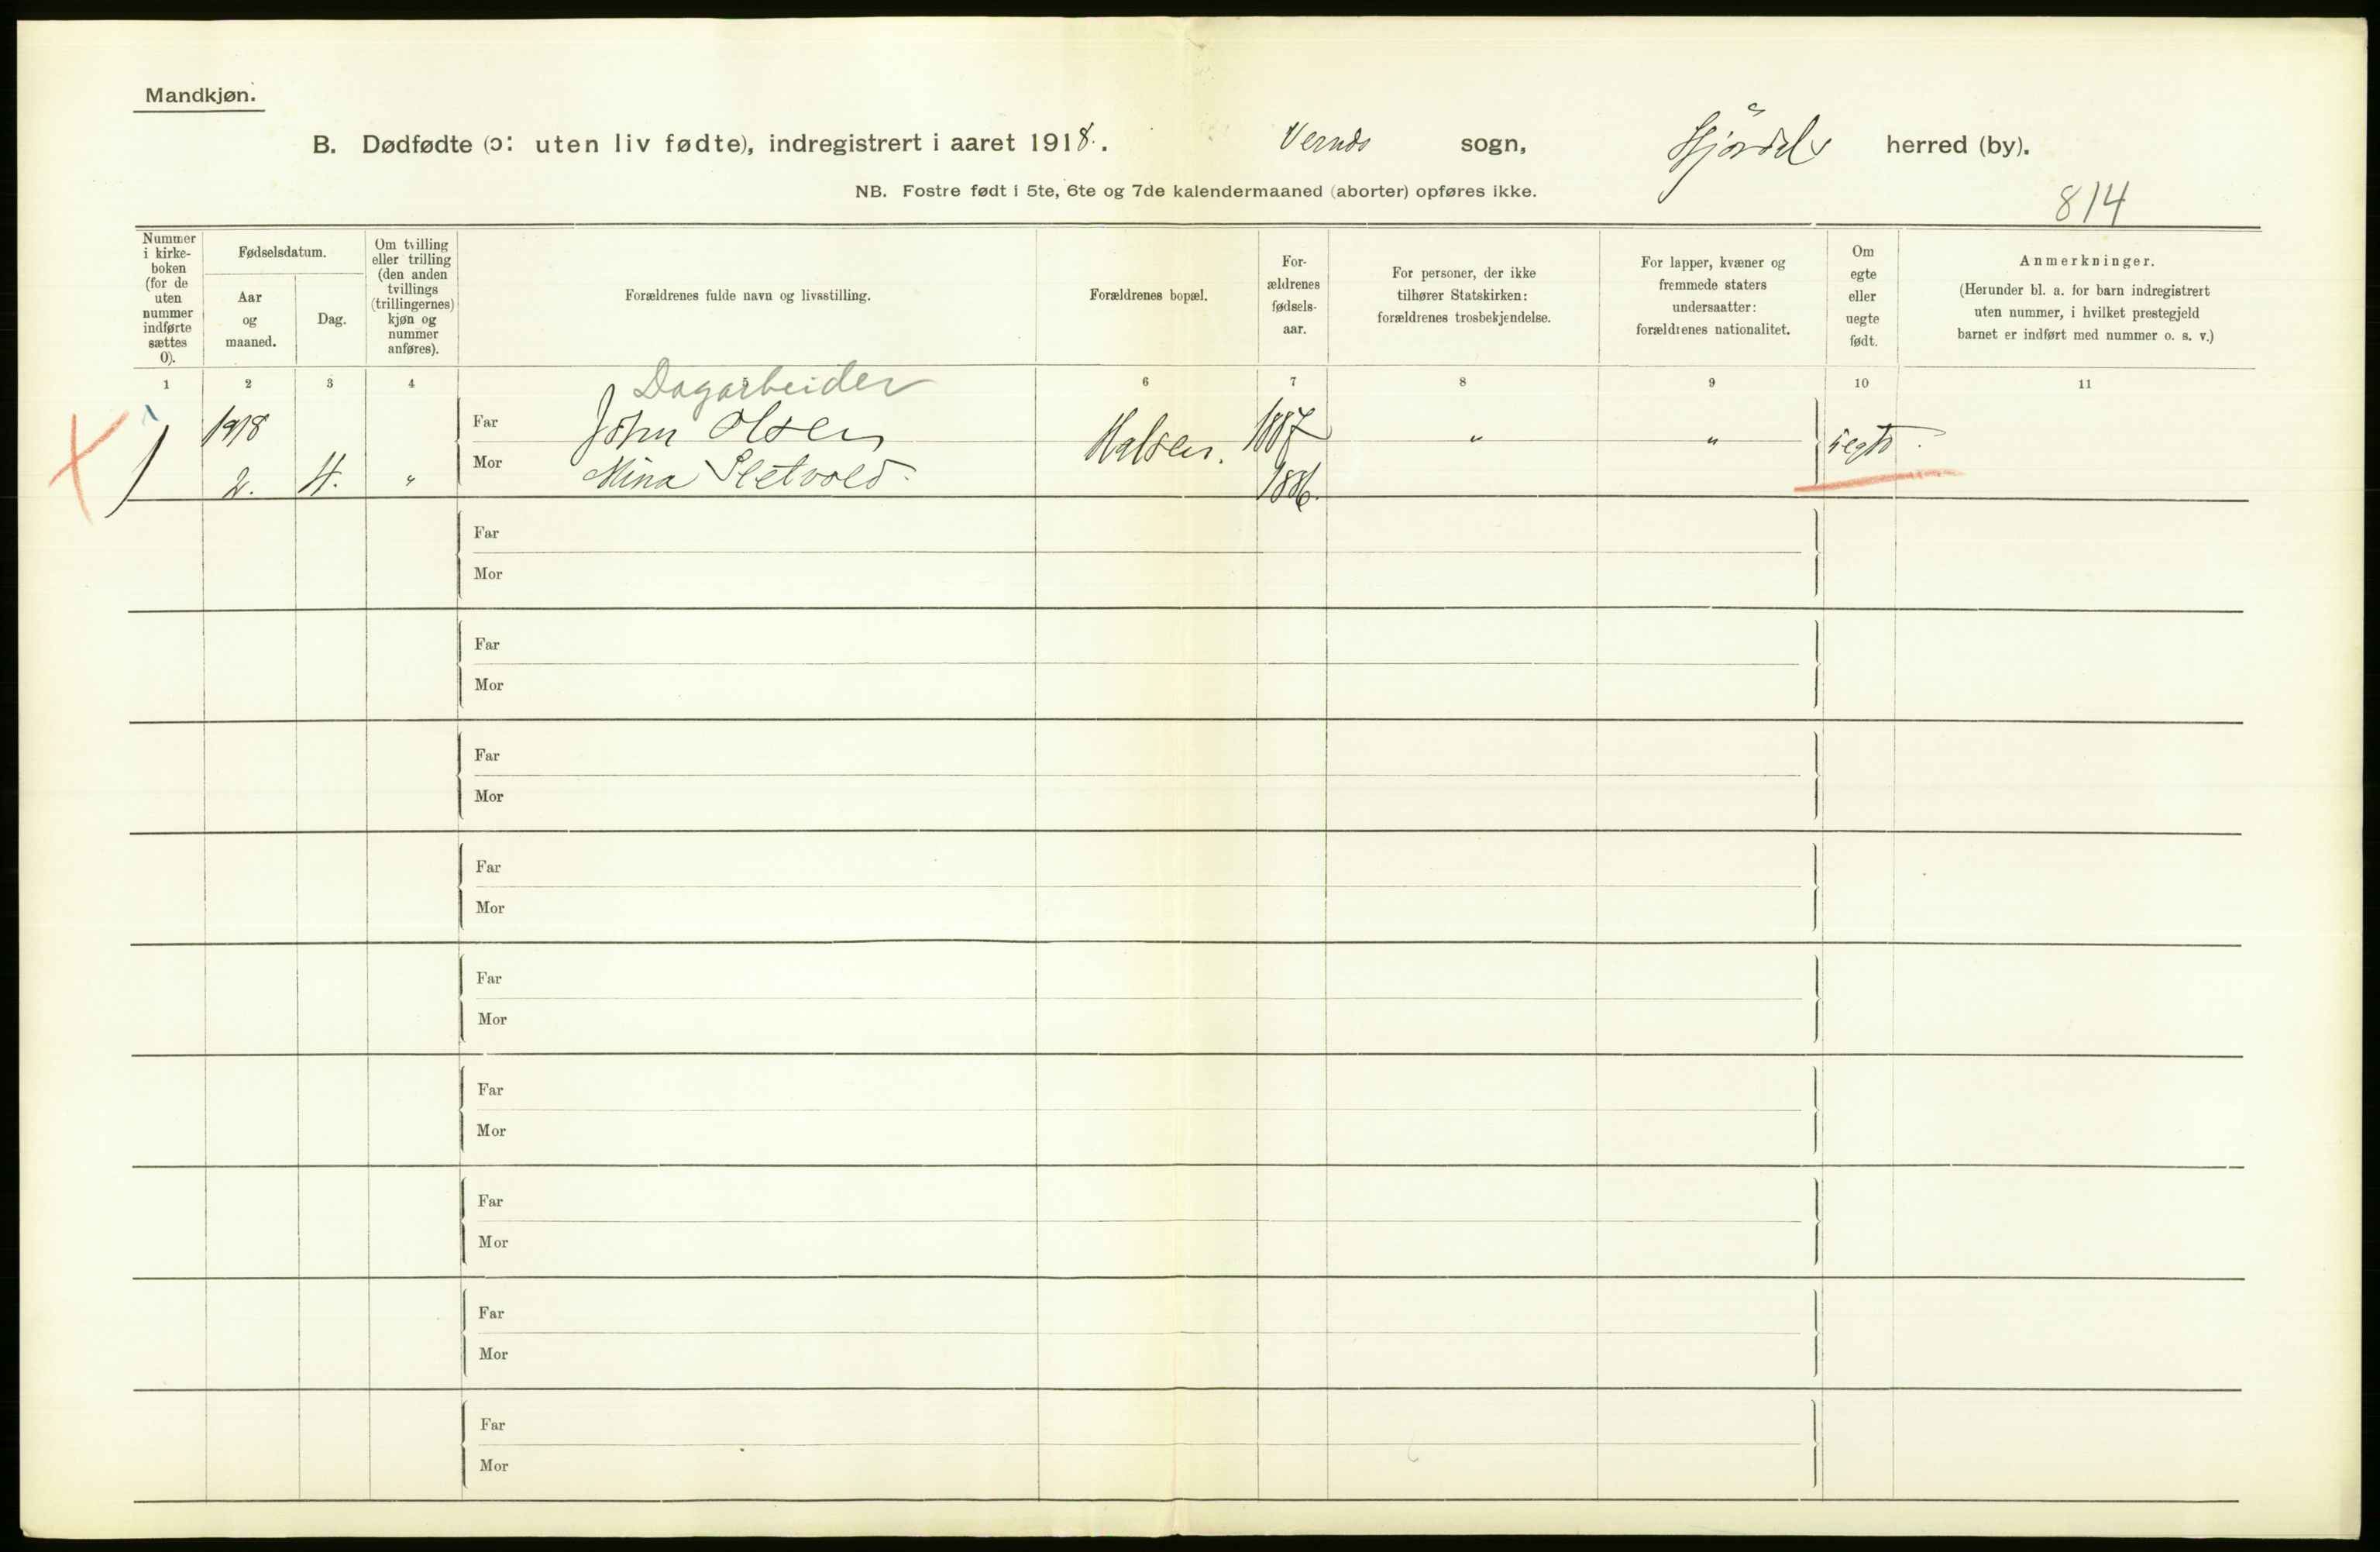 Mandkjøn.
B. Dødfødte (ɔ: uten liv fødte), indregistrert i aaret 1918. sogn, herred (by).
NB. Fostre født i 5te, 6te og 7de kalendermaaned (aborter) opføres ikke.
814
Nummer
i kirke-
boken
(for de
uten
nummer
indførte
sættes
0).
Fødselsdatum.
Aar
og
maaned.
Dag.
Om tvilling
eller trilling
(den anden
tvillings
(trillingernes)
kjøn og
nummer
anføres).
Forældrenes fulde navn og livsstilling.
Forældrenes bopæl.
For-
ældrenes
fødsels-
aar.
For personer, der ikke
tilhører Statskirken:
forældrenes trosbekjendelse.
For lapper, kvæner og
fremmede staters
undersaatter:
forældrenes nationalitet.
Om
egte
eller
uegte
født.
Anmerkninger.
(Herunder bl. a. for barn indregistrert
uten nummer, i hvilket prestegjeld
barnet er indført med nummer o. s. v.)
1 2 3 4 5 6 7 8 9 10 11
Dagarbeider
1918 Far John Olsen Halsen. 1887 " "
1 2. 4. " Mor Mina Sletvold. 1886.
Far
Mor
Far
Mor
Far
Mor
Far
Mor
Far
Mor
Far
Mor
Far
Mor
Far
Mor
Far
Mor